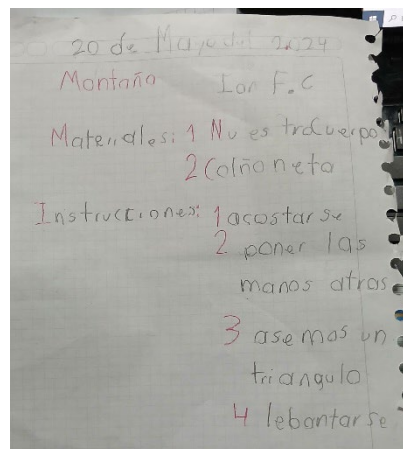 20 de Mayo del 2024
Montaña Ian F.C
Materiales: 1 Nuestro Cuerpo
2 Colñoneta
Instrucciones: 1 acostarse
2 poner las
manos atras
3 asemos un
triangulo
4 lebantarse